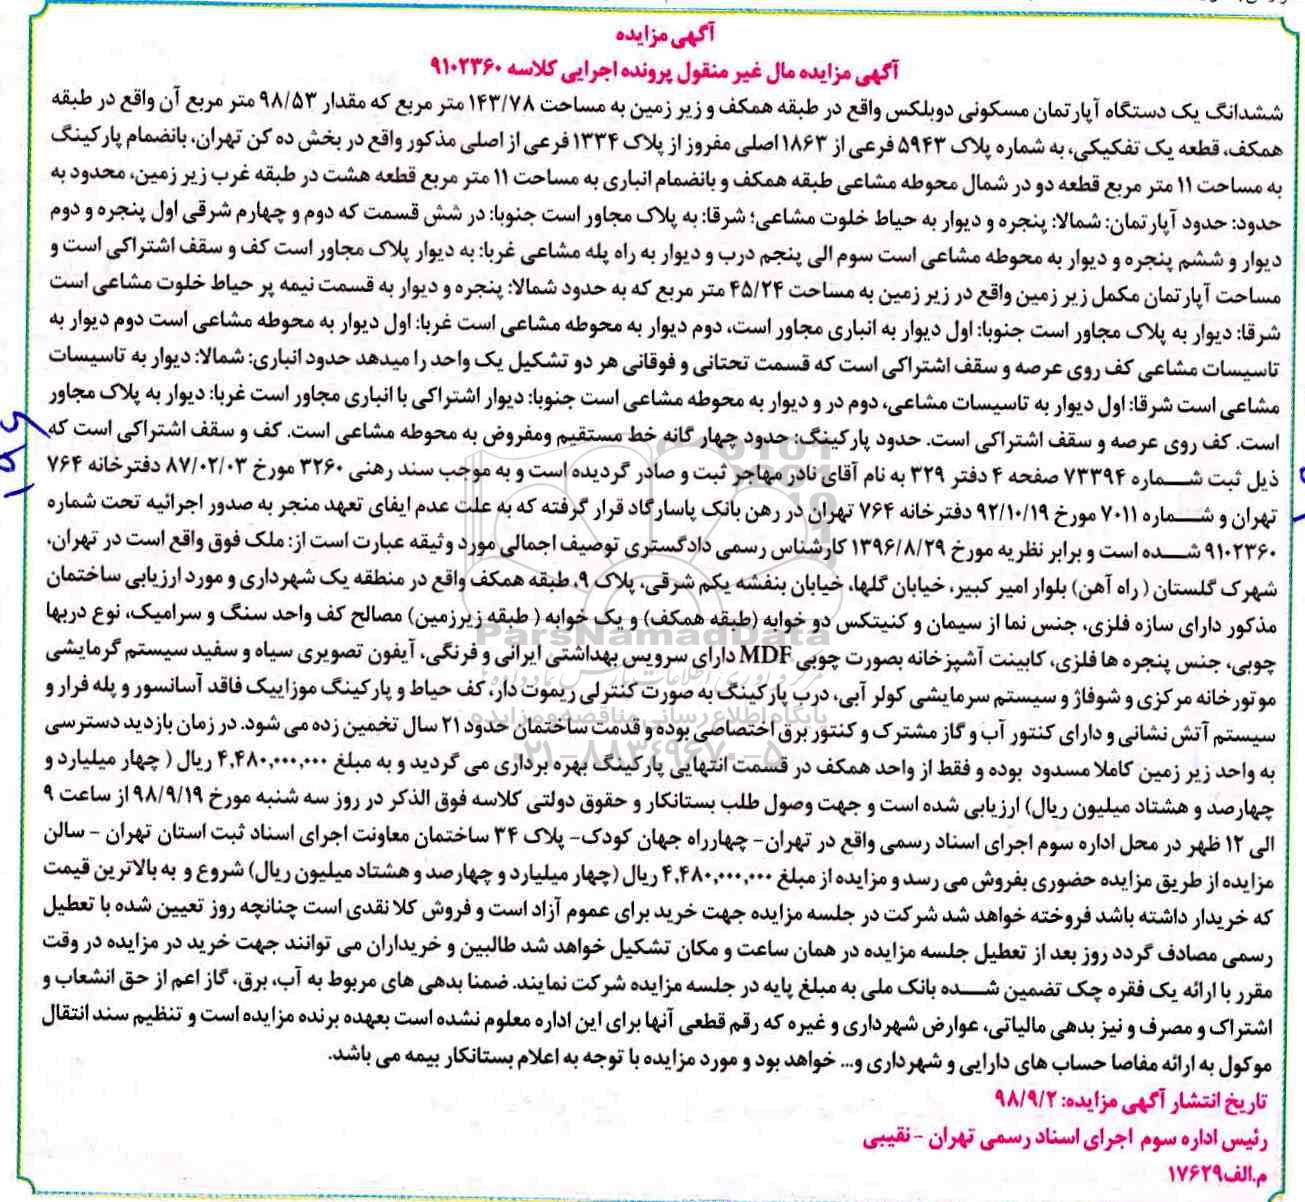 آگهی مزایده
آگهی مزایده مال غیر منقول پرونده اجرایی کلاسه ۹۱۰۲۳۶۰
ششدانگ یک دستگاه آپارتمان مسکونی دوبلکس واقع در طبقه همکف و زیر زمین به مساحت ۱۴۳/۷۸ متر مربع که مقدار ۹۸/۵۳ متر مربع آن واقع در طبقه
همکف، قطعه یک تفکیکی، به شماره پلاک ۵۹۴۳ فرعی از ۱۸۶۳ اصلی مفروز از پلاک ۱۳۳۴ فرعی از اصلی مذکور واقع در بخش ده کن تهران، بانضمام پارکینگ
به مساحت ۱۱ متر مربع قطعه دو در شمال محوطه مشاعی طبقه همکف و بانضمام انباری به مساحت ۱۱ متر مربع قطعه هشت در طبقه غرب زیر زمین، محدود به
حدود: حدود آپارتمان: شمالا: پنجره و دیوار به حیاط خلوت مشاعی؛ شرقا: به پلاک مجاور است جنوبا: در شش قسمت که دوم و چهارم شرقی اول پنجره و دوم
دیوار و ششم پنجره و دیوار به محوطه مشاعی است سوم الی پنجم درب و دیوار به راه پله مشاعی غربا: به دیوار پلاک مجاور است کف و سقف اشتراکی است و
مساحت آپارتمان مکمل زیر زمین واقع در زیر زمین به مساحت ۴۵/۲۴ متر مربع که به حدود شمالا: پنجره و دیوار به قسمت نیمه پر حیاط خلوت مشاعی است
شرقا: دیوار به پلاک مجاور است جنوبا: اول دیوار به انباری مجاور است، دوم دیوار به محوطه مشاعی است غربا: اول دیوار به محوطه مشاعی است دوم دیوار به
تاسیسات مشاعی کف روی عرصه و سقف اشتراکی است که قسمت تحتانی و فوقانی هر دو تشکیل یک واحد را میدهد حدود انباری: شمالا: دیوار به تاسیسات
مشاعی است شرقا: اول دیوار به تاسیسات مشاعی، دوم در و دیوار به محوطه مشاعی است جنوبا: دیوار اشتراکی با انباری مجاور است غربا: دیوار به پلاک مجاور
است. کف روی عرصه و سقف اشتراکی است. حدود پارکینگ: حدود چهار گانه خط مستقیم ومفروض به محوطه مشاعی است. کف و سقف اشتراکی است که
ذیل ثبت شماره ۷۳۳۹۴ صفحه ۴ دفتر ۳۲۹ به نام آقای نادر مهاجر ثبت و صادر گردیده است و به موجب سند رهنی ۳۲۶۰ مورخ ۸۷/۰۲/۰۳ دفترخانه ۷۶۴
تهران و شماره ۷۰۱۱ مورخ ۹۲/۱۰/۱۹ دفترخانه ۷۶۴ تهران در رهن بانک پاسارگاد قرار گرفته که به علت عدم ایفای تعهد منجر به صدور اجرائیه تحت شماره
۹۱۰۲۳۶۰ شده است و برابر نظریه مورخ ۱۳۹۶/۸/۲۹ کارشناس رسمی دادگستری توصیف اجمالی مورد وثیقه عبارت است از: ملک فوق واقع است در تهران،
شهرک گلستان ( راه آهن) بلوار امیر کبیر، خیابان گلها، خیابان بنفشه یکم شرقی، پلاک ۹، طبقه همکف واقع در منطقه یک شهرداری و مورد ارزیابی ساختمان
مذکور دارای سازه فلزی، جنس نما از سیمان و کنیتکس دو خوابه (طبقه همکف) و یک خوابه ( طبقه زیرزمین) مصالح کف واحد سنگ و سرامیک، نوع دربها
چوبی، جنس پنجره ها فلزی، کابینت آشپزخانه بصورت چوبی MDF دارای سرویس بهداشتی ایرانی و فرنگی، آیفون تصویری سیاه و سفید سیستم گرمایشی
موتورخانه مرکزی و شوفاژ و سیستم سرمایشی کولر آبی، درب پارکینگ به صورت کنترلی ریموت دار، کف حیاط و پارکینگ موزاییک فاقد آسانسور و پله فرار و
سیستم آتش نشانی و دارای کنتور آب و گاز مشترک و کنتور برق اختصاصی بوده و قدمت ساختمان حدود ۲۱ سال تخمین زده می شود. در زمان بازدید دسترسی
به واحد زیر زمین کاملا مسدود بوده و فقط از واحد همکف در قسمت انتهایی پارکینگ بهره برداری می گردید و به مبلغ ۴,۴۸۰,۰۰۰,۰۰۰ ریال ( چهار میلیارد و
چهارصد و هشتاد میلیون ریال) ارزیابی شده است و جهت وصول طلب بستانکار و حقوق دولتی کلاسه فوق الذکر در روز سه شنبه مورخ ۹۸/۹/۱۹ از ساعت ۹
الی ۱۲ ظهر در محل اداره سوم اجرای اسناد رسمی واقع در تهران- چهارراه جهان کودک- پلاک ۳۴ ساختمان معاونت اجرای اسناد ثبت استان تهران - سالن
مزایده از طریق مزایده حضوری بفروش می رسد و مزایده از مبلغ ۴,۴۸۰,۰۰۰,۰۰۰ ریال (چهار میلیارد و چهارصد و هشتاد میلیون ریال) شروع و به بالاترین قیمت
که خریدار داشته باشد فروخته خواهد شد شرکت در جلسه مزایده جهت خرید برای عموم آزاد است و فروش کلا نقدی است چنانچه روز تعیین شده با تعطیل
رسمی مصادف گردد روز بعد از تعطیل جلسه مزایده در همان ساعت و مکان تشکیل خواهد شد طالبین و خریداران می توانند جهت خرید در مزایده در وقت
مقرر با ارائه یک فقره چک تضمین شده بانک ملی به مبلغ پایه در جلسه مزایده شرکت نمایند. ضمنا بدهی های مربوط به آب، برق، گاز اعم از حق انشعاب و
اشتراک و مصرف و نیز بدهی مالیاتی، عوارض شهرداری و غیره که رقم قطعی آنها برای این اداره معلوم نشده است بعهده برنده مزایده است و تنظیم سند انتقال
موکول به ارائه مفاصا حساب های دارایی و شهرداری و... خواهد بود و مورد مزایده با توجه به اعلام بستانکار بیمه می باشد.
تاریخ انتشار آگهی مزایده: ۹۸/۹/۲
رئیس اداره سوم اجرای اسناد رسمی تهران - نقیبی
م.الف۱۷۶۲۹
ParsNamadData
پایگاه اطلاع رسانی مناقصه و مزایده
۰۲۱-۸۸۳۴۹۶۷۰-۵